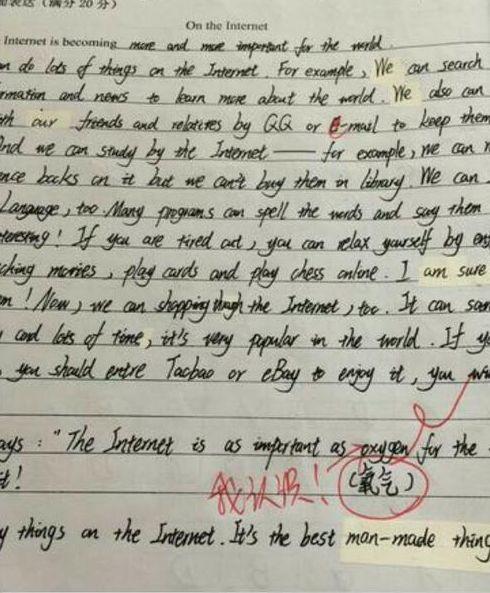 (满分20分)
On the Internet
Internet is becoming more and more important for the world.
do lots of things on the Internet. For example, We can search
and news to learn more about the world. We also can
our friends and relatives by QQ or e-mail to keep them
And we can study by the Internet —— for example, we can
books on it but we can't buy them in library. We can
Language, too. Many programs can spell the words and say them
! If you are tired out, you can relax yourself by
movies, play cards and play chess online. I am sure
! Now, we can shopping though the Internet, too. It can
and lots of time, it's very popular in the world. If
, you should entre Taobao or eBay to enjoy it, you
: "The Internet is as important as oxygen for the
it!
我认服!
(氧气)
things on the Internet. It's the best man-made thing